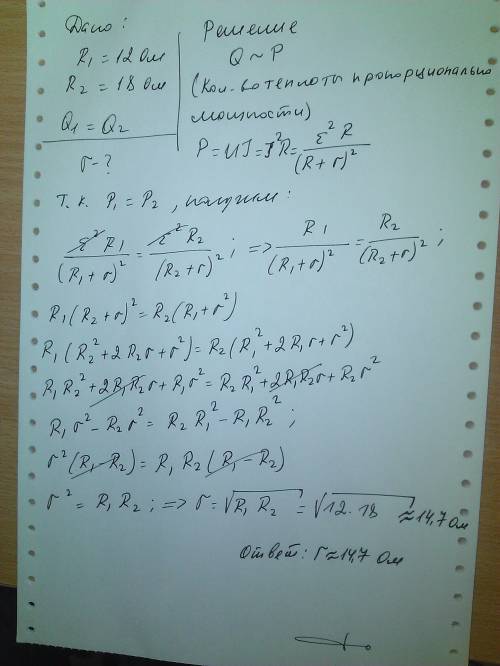 Дано:
R₁ = 12 Ом
R₂ = 18 Ом
Q₁ = Q₂
r - ?
Решение
Q ~ P
(Кол-во теплоты пропорционально
мощности)
P = UI = I²R = ε² R / (R + r)²
Т. к. P₁ = P₂, получим:
ε² R₁ / (R₁ + r)² = ε² R₂ / (R₂ + r)² ; => R₁ / (R₁ + r)² = R₂ / (R₂ + r)² ;
R₁ (R₂ + r)² = R₂ (R₁ + r²)
R₁ (R₂² + 2R₂r + r²) = R₂ (R₁² + 2R₁r + r²)
R₁R₂² + 2R₁R₂r + R₁r² = R₂R₁² + 2R₁R₂r + R₂r²
R₁r² - R₂r² = R₂R₁² - R₁R₂² ;
r² (R₁ - R₂) = R₁R₂ (R₁ - R₂)
r² = R₁R₂ ; => r = √R₁R₂ = √12·18 ≈ 14,7 Ом
Ответ: r ≈ 14,7 Ом